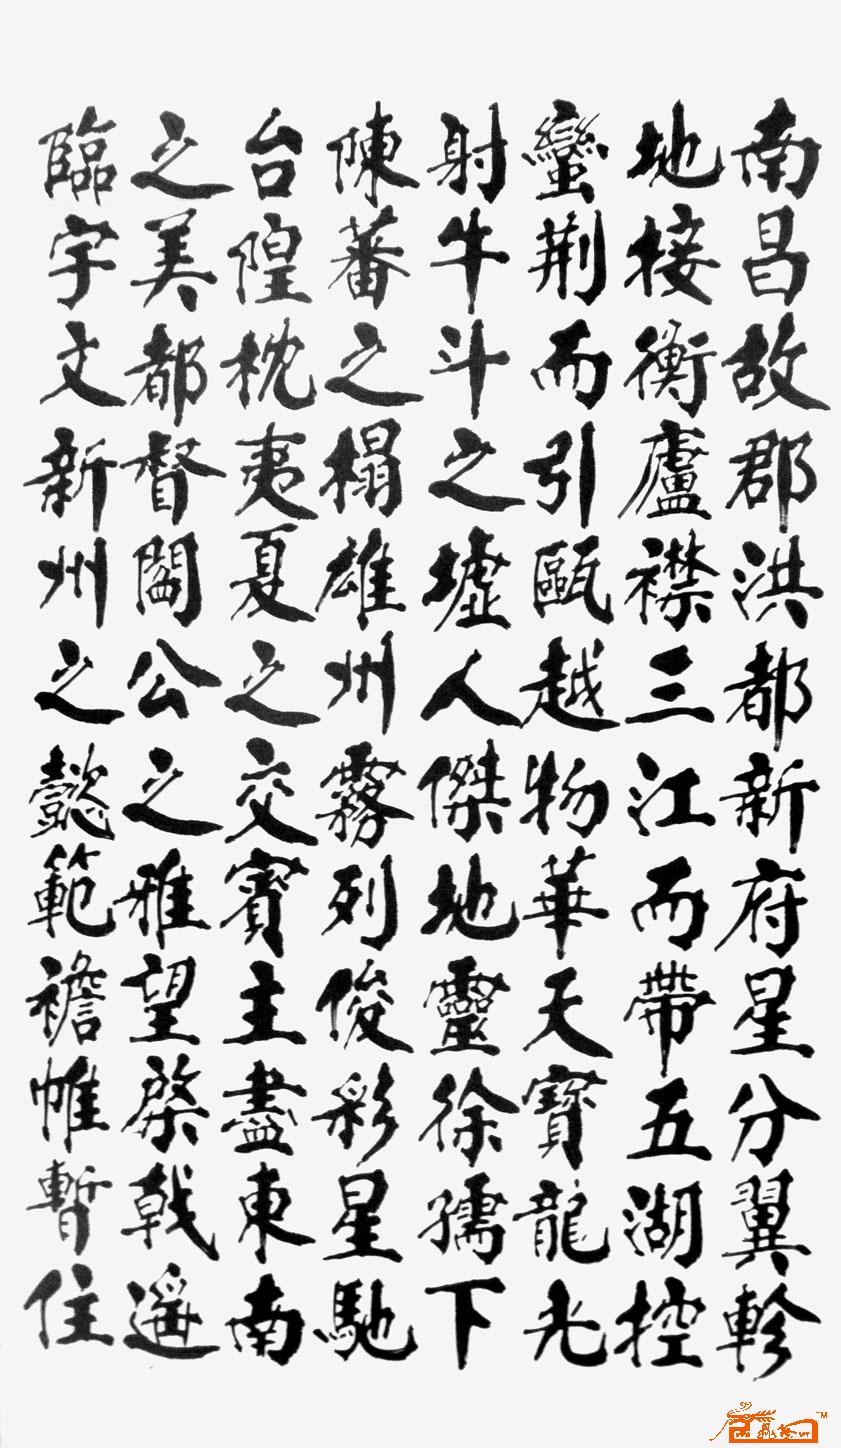 南昌故郡洪都新府星分翼軫
地接衡廬襟三江而帶五湖控
蠻荆而引甌越物華天寶龍光
射牛斗之墟人傑地靈徐孺下
陳蕃之榻雄州霧列俊彩星馳
台隍枕夷夏之交賓主盡東南
之美都督閻公之雅望棨戟遥
臨宇文新州之懿範襜帷暫住